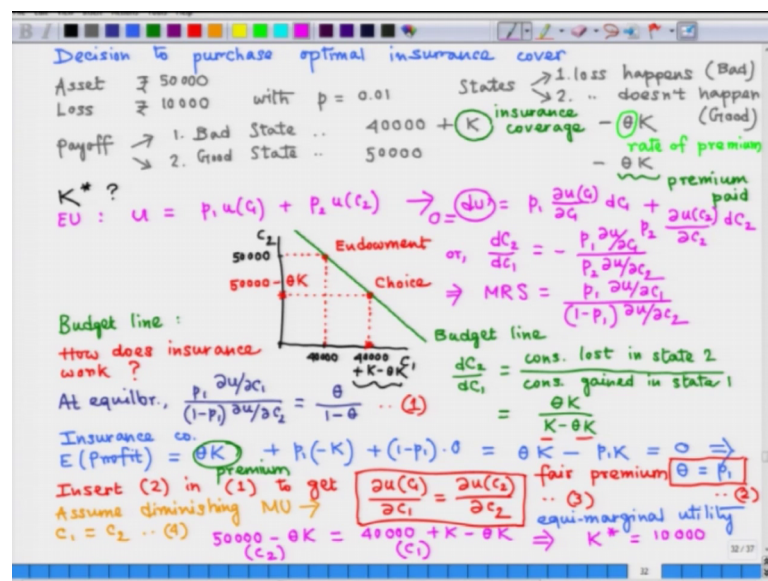 Decision to purchase optimal insurance cover
Asset ₹ 50000
Loss ₹ 10000 with p = 0.01
States → 1. loss happens (Bad)
↘ 2. .. doesn't happen (Good)
Payoff → 1. Bad State .. 40000 + K insurance coverage - θK
rate of premium
↘ 2. Good State .. 50000 - θK
premium paid
K* ?
EU : u = p₁ u(C₁) + p₂ u(C₂) → 0 = du = p₁ ∂u(C₁)/∂C₁ dC₁ + p₂ ∂u(C₂)/∂C₂ dC₂
or, dC₂/dC₁ = - p₁ ∂u/∂C₁ / p₂ ∂u/∂C₂
⇒ MRS = p₁ ∂u/∂C₁ / (1-p₁) ∂u/∂C₂
C₂
50000
Endowment
50000 - θK
Choice
40000
40000 + K - θK
C₁
Budget line :
How does insurance work ?
Budget line
dC₂/dC₁ = cons. lost in state 2 / cons. gained in state 1
= θK / K - θK
At equilbr., p₁ ∂u/∂C₁ / (1-p₁) ∂u/∂C₂ = θ / 1-θ .. (1)
Insurance co.
E (Profit) = θK + p₁(-K) + (1-p₁).0 = θK - p₁K = 0 ⇒
premium
fair premium θ = p₁ .. (2)
Insert (2) in (1) to get ∂u(C₁)/∂C₁ = ∂u(C₂)/∂C₂ .. (3)
Assume diminishing MU →
equi-marginal utility
C₁ = C₂ .. (4)
50000 - θK = 40000 + K - θK ⇒ K* = 10000
(C₂) (C₁)
32/37
32